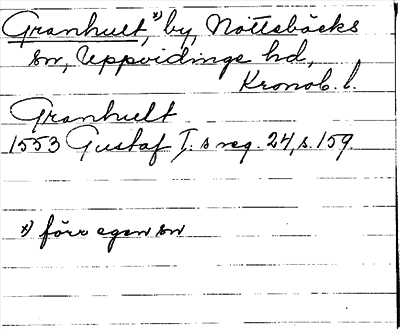 Granhult,*) by, Nottebäcks
sn, Uppvidinge hd,
Kronob. l.
Granhullt
1553 Gustaf I:s reg. 24, s. 159.
*) förr egen sn